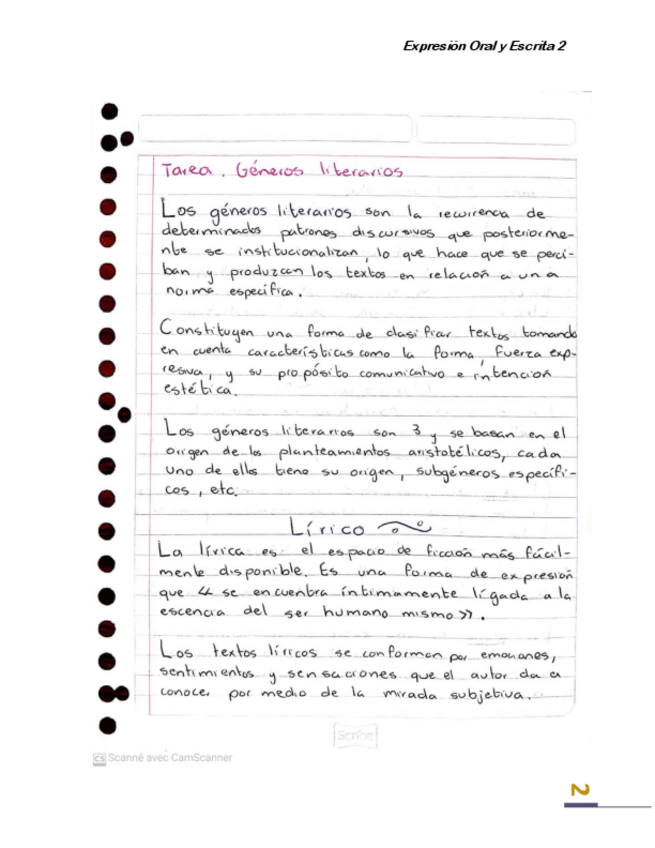 Expresión Oral y Escrita 2
Tarea. Géneros literarios
Los géneros literarios son la recurrencia de
determinados patrones discursivos que posteriorme-
nte se institucionalizan, lo que hace que se perci-
ban y produzcan los textos en relación a una
norma específica.
Constituyen una forma de clasificar textos tomando
en cuenta características como la forma, fuerza exp-
resiva, y su propósito comunicativo e intención
estética.
Los géneros literarios son 3 y se basan en el
origen de los planteamientos aristotélicos, cada
uno de ellos tiene su origen, subgéneros específi-
cos, etc.
Lírico
La lírica es el espacio de ficción más fácil-
mente disponible. Es una forma de expresión
que << se encuentra íntimamente lígada a la
escencia del ser humano mismo >>.
Los textos líricos se conforman por emociones,
sentimientos y sensaciones que el autor da a
conocer por medio de la mirada subjetiva.
Scribe
CS Scanné avec CamScanner
2